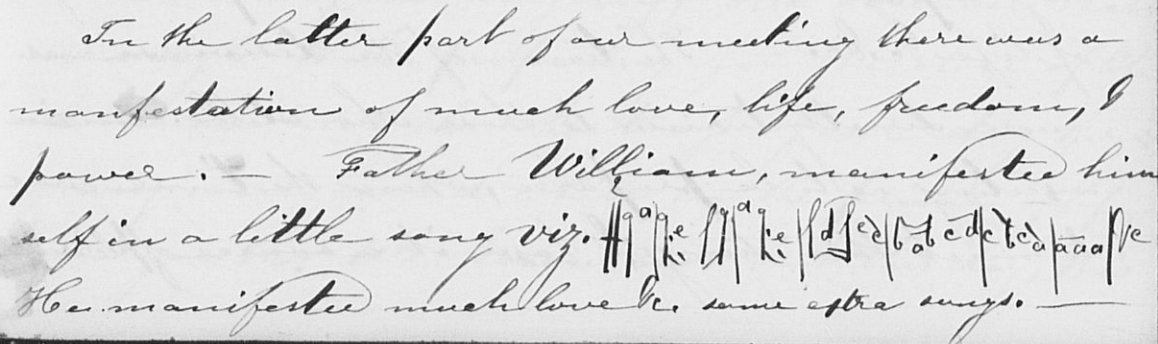 In the latter part of our meeting there was a
manfestation of much love, life, freedom, &
power. — Father William, manifested him
self in a little song viz.
He manifested much love &c. some extra songs. —